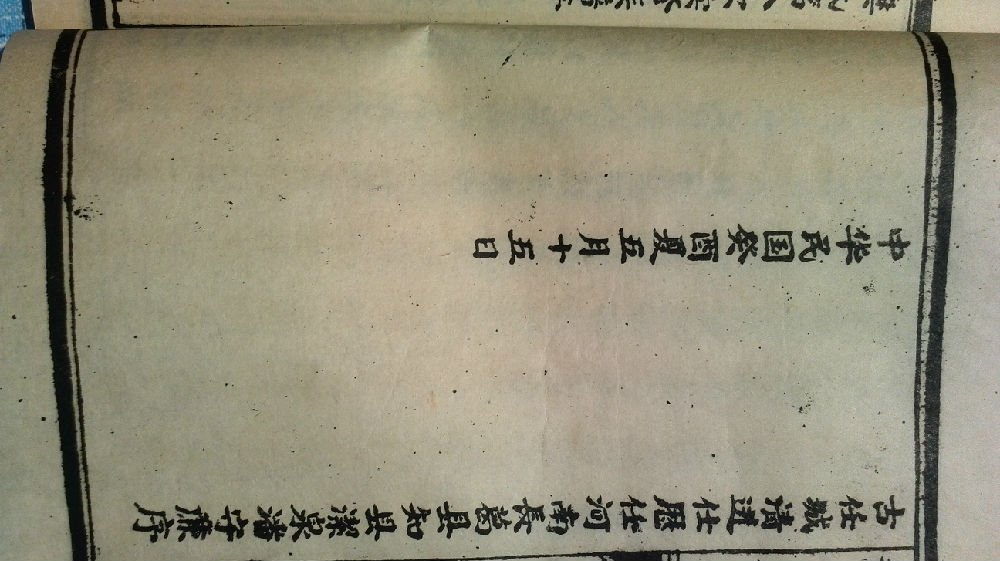 古任城清进仕歷仕河南長葛县知县潔泉潘守廉序
中华民国癸酉夏五月十五日